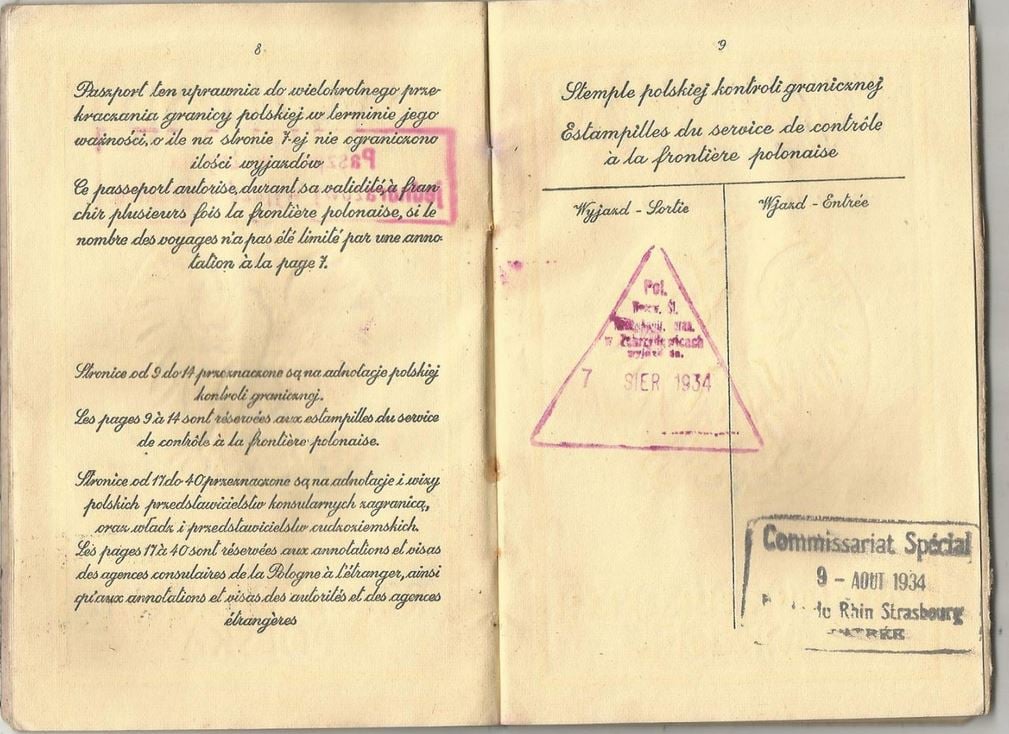 8
Paszport ten uprawnia do wielokrotnego prze-
kraczania granicy polskiej w terminie jego
ważności, o ile na stronie 7-ej nie ograniczono
ilości wyjazdów
Ce passeport autorise, durant sa validité, à fran
chir plusieurs fois la frontière polonaise, si le
nombre des voyages n'a pas été limité par une anno-
tation à la page 7.
Stronice od 9 do 14 przeznaczone są na adnotacje polskiej
kontroli granicznej.
Les pages 9 à 14 sont réservées aux estampilles du service
de contrôle à la frontière polonaise.
Stronice od 17 do 40 przeznaczone są na adnotacje i wizy
polskich przedstawicielstw konsularnych zagranicą,
oraz władz i przedstawicielstw cudzoziemskich.
Les pages 17 à 40 sont réservées aux annotations et visas
des agences consulaires de la Pologne à l'étranger, ainsi
qu'aux annotations et visas des autorités et des agences
étrangères
9
Stemple polskiej kontroli granicznej
Estampilles du service de contrôle
à la frontière polonaise
Wyjazd - Sortie
Wjazd - Entrée
Pol.
Śl.
w Zebrzydowicach
wyjazd dn.
7 SIER 1934
Commissariat Spécial
9 - AOUT 1934
du Rhin Strasbourg
ENTRÉE